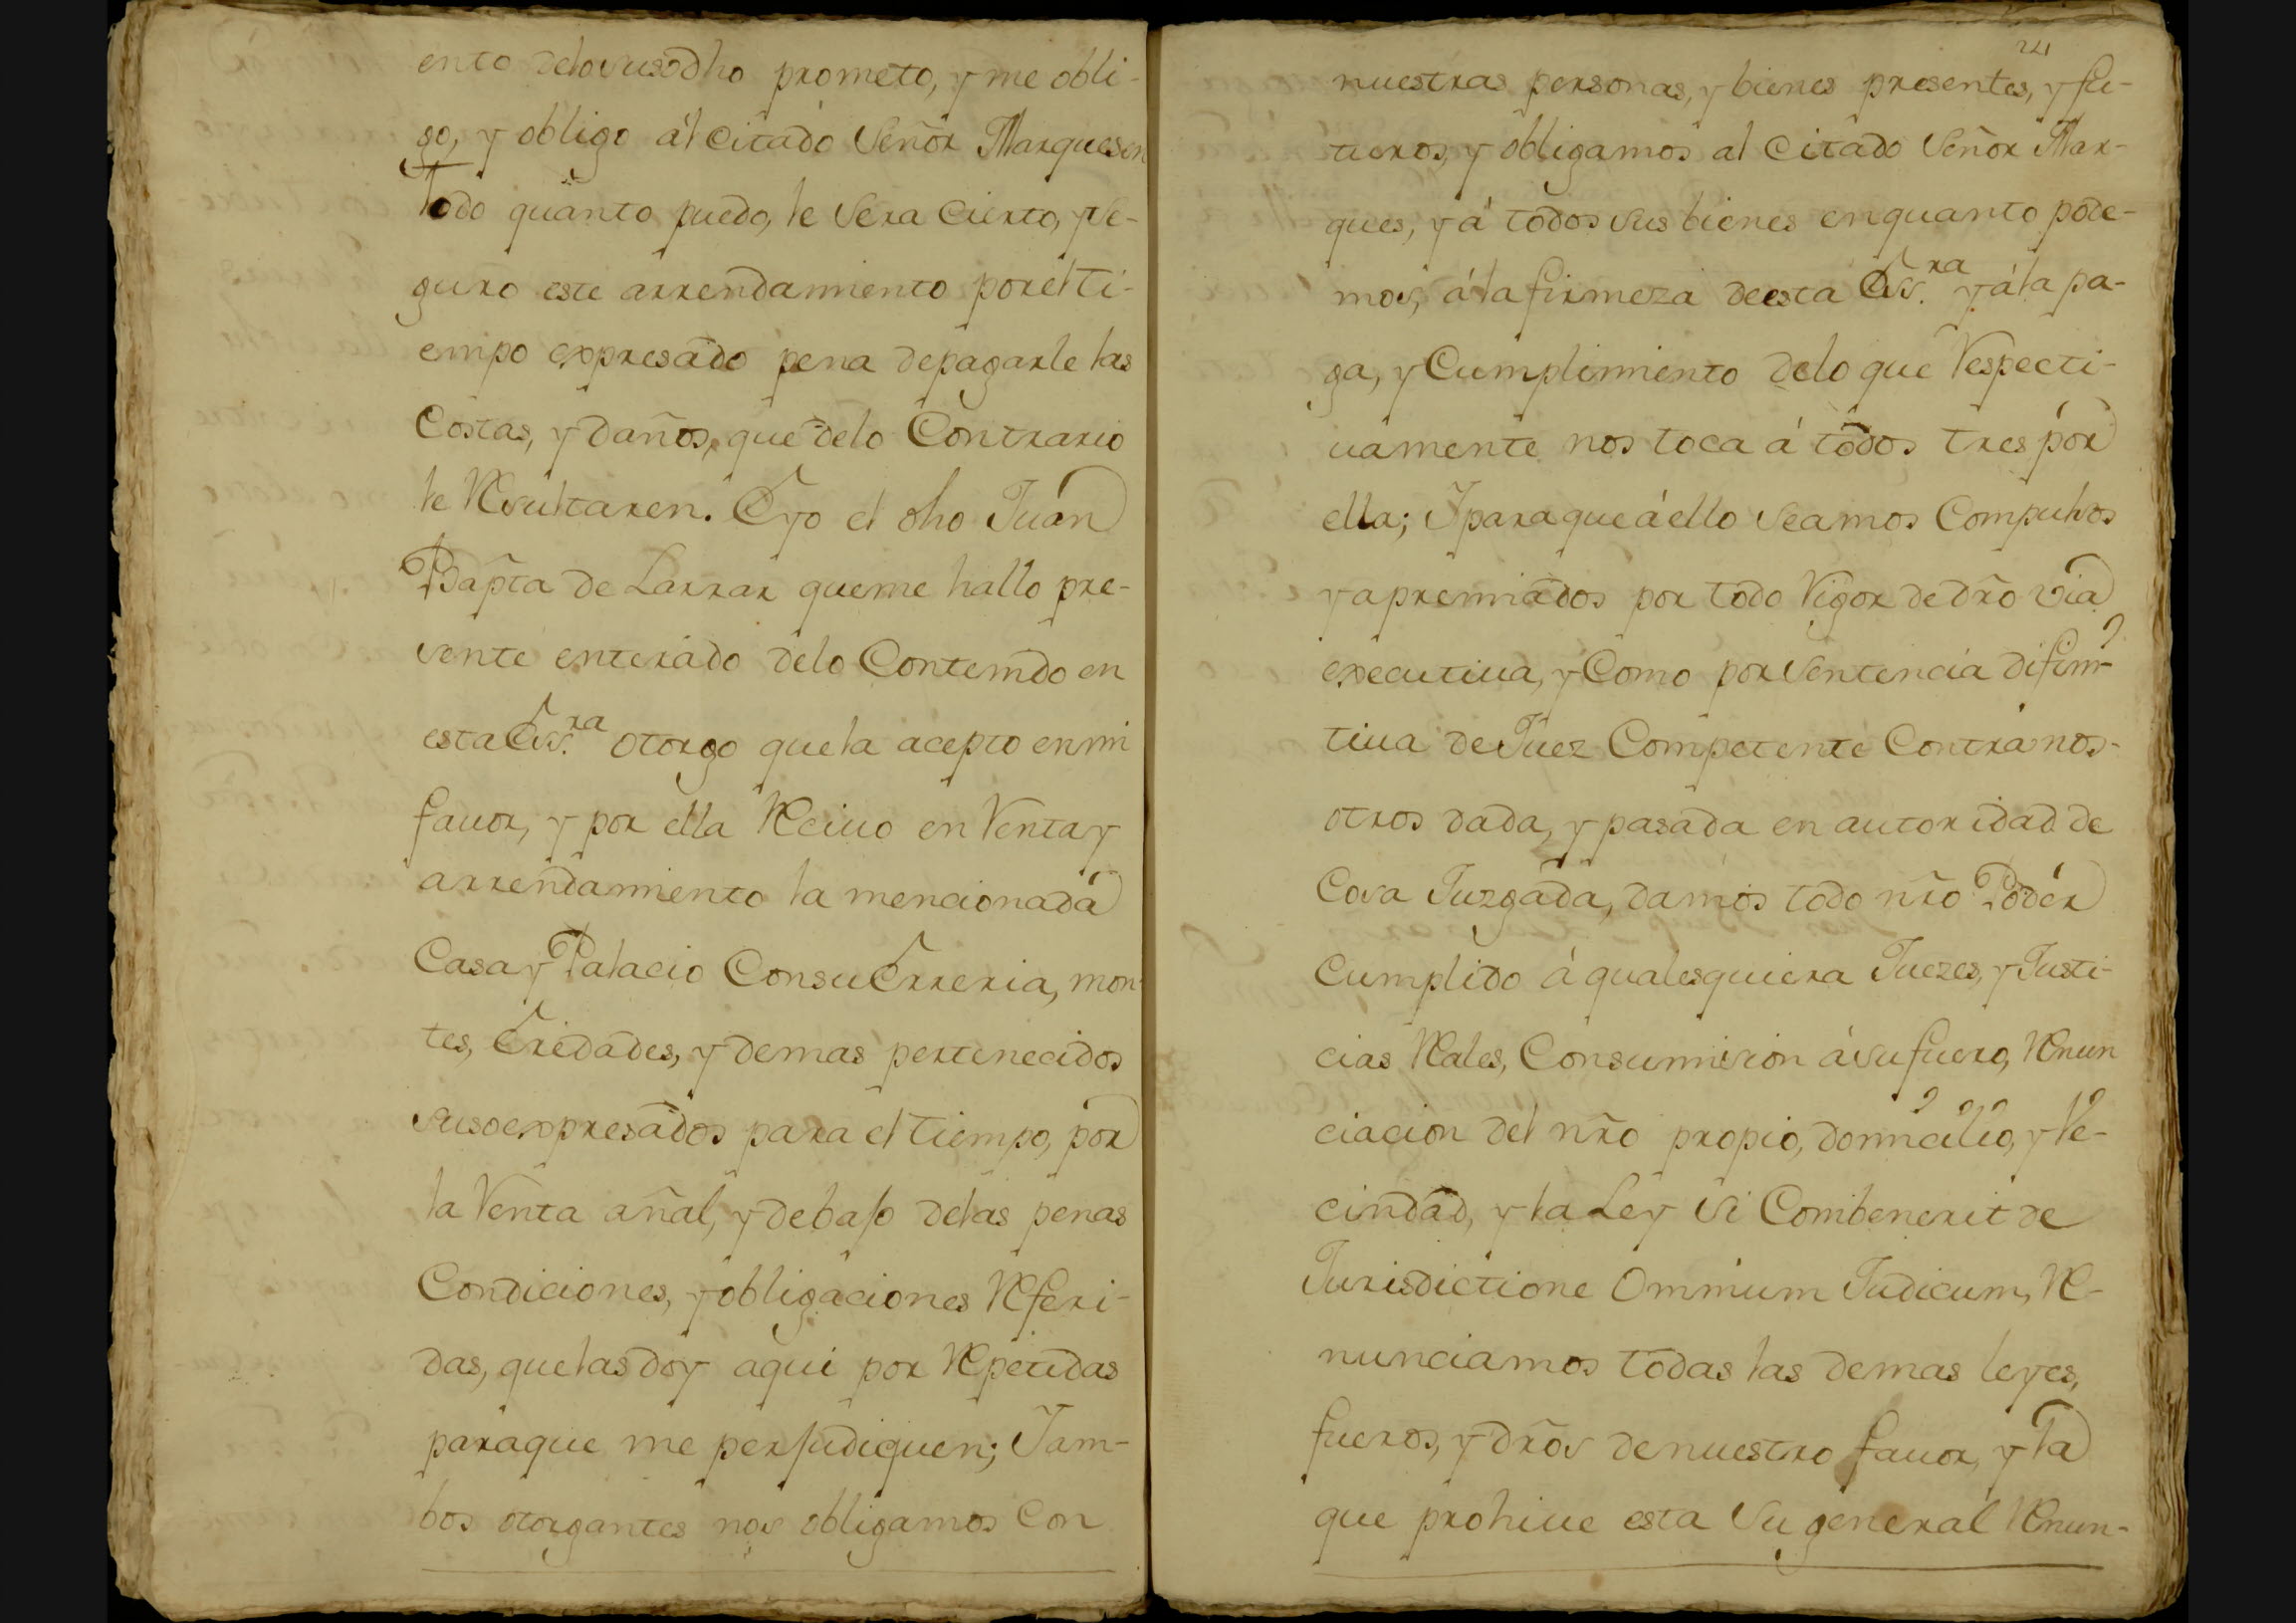 ento delosusodho prometo, y me obli-
go, y obligo ál citado Señor Marques en
todo quanto puedo, le sera cierto, y se-
guro este arrendamiento por el ti-
empo expresado pena depagarle las
Costas, y daños, que delo Contrario
le Resultaren. Eyo el dho Juan
Bapta de Larrar queme hallo pre-
sente enterado delo Contenido en
esta Ess.ra otorgo que la acepto en mi
favor, y por ella Reciuo en Renta y
arrendamiento la mencionada
Casa y Palacio Consu Erreria, mon-
tes, Eredades, y demas pertenecidos
susoexpresados para el tiempo, por
la Renta añal, y debajo delas penas
Condiciones, y obligaciones Referi-
das, que las doy aqui por Repetidas
paraque me perjudiquen; Yam-
bos otorgantes nos obligamos Con
24
nuestras personas, y bienes presentes, y fu-
turos, y obligamos al citado Señor Mar-
ques, y á todos sus bienes enquanto pode-
mos, á la firmeza deesta Ess.ra y á la pa-
ga, y Cumplimiento delo que Respecti-
uamente nos toca á todos tres por
ella; Yparaque á ello seamos Compulsos
y apremiados por todo Rigor de dro via
executiua, y Como por sentencia difini-
tiua de Juez Competente Contra nos-
otros dada, y pasada en autoridad de
Cosa Juzgada, damos todo nro Poder
Cumplido á qualesquiera Juezes, y Justi-
cias Reales, Consumision á su fuero, Renun
ciacion del nro propio, domicilio, y Ve-
cindad, y la Ley si Combenerit de
Jurisdictione Omnium Judicum, Re-
nunciamos todas las demas leyes,
fueros, y dros de nuestro fauor, y la
que prohiue esta su general Renun-